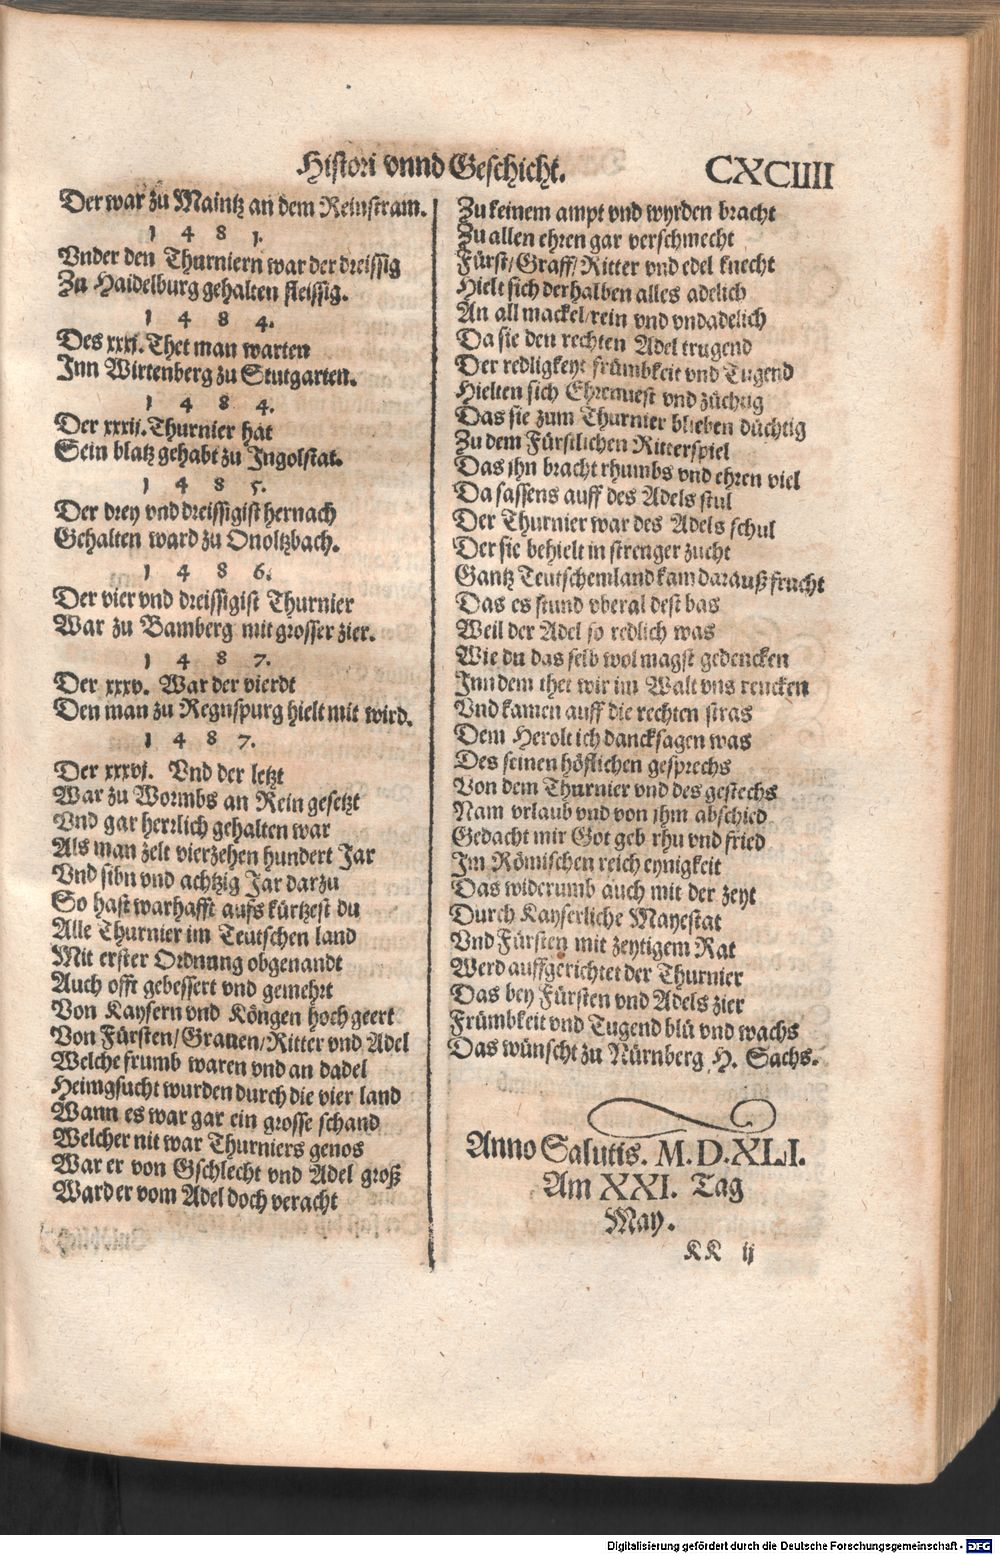 Histori vnnd Geschicht.
CXCIIII
Der war zu Maintz an dem Reinstram.
1 4 8 1.
Vnder den Thurniern war der dreissig
Zu Haidelburg gehalten fleissig.
1 4 8 4.
Des xxxj. Thet man warten
Inn Wirtenberg zu Stutgarten.
1 4 8 4.
Der xxxij. Thurnier hat
Sein blatz gehabt zu Ingolstat.
1 4 8 5.
Der drey vnd dreissigist hernach
Gehalten ward zu Onoltzbach.
1 4 8 6.
Der vier vnd dreissigist Thurnier
War zu Bamberg mit grosser zier.
1 4 8 7.
Der xxxv. War der vierdt
Den man zu Regnspurg hielt mit wird.
1 4 8 7.
Der xxxvj. Vnd der letzt
War zu Wormbs an Rein gesetzt
Vnd gar herrlich gehalten war
Als man zelt vierzehen hundert Jar
Vnd sibn vnd achtzig Jar darzu
So hast warhafft aufs kürtzest du
Alle Thurnier im Teutschen land
Mit erster Ordnung obgenandt
Auch offt gebessert vnd gemehrt
Von Kaysern vnd Köngen hoch geert
Von Fürsten/Grauen/Ritter vnd Adel
Welche frumb waren vnd an dadel
Heimgsucht wurden durch die vier land
Wann es war gar ein grosse schand
Welcher nit war Thurniers genos
War er von Gschlecht vnd Adel groß
Ward er vom Adel doch veracht
Zu keinem ampt vnd wyrden bracht
Zu allen ehren gar verschmecht
Fürst/Graff/Ritter vnd edel knecht
Hielt sich derhalben alles adelich
An all mackel/rein vnd vndadelich
Da sie den rechten Adel trugend
Der redligkeyt frümbkeit vnd Tugend
Hielten sich Ehrnuest vnd züchtig
Das sie zum Thurnier blieben düchtig
Zu dem Fürstlichen Ritterspiel
Das jhn bracht rhumbs vnd ehren viel
Da sassens auff des Adels stul
Der Thurnier war des Adels schul
Der sie behielt in strenger zucht
Gantz Teutschem land kam darauß frucht
Das es stund vberal dest bas
Weil der Adel so redlich was
Wie du das selb wol magst gedencken
Inn dem thet wir im Walt vns rencken
Vnd kamen auff die rechten stras
Dem Herolt ich dancksagen was
Des seinen höflichen gesprechs
Von dem Thurnier vnd des gestechs
Nam vrlaub vnd von jhm abschied
Gedacht mir Got geb rhu vnd fried
Im Römischen reich eynigkeit
Das widerumb auch mit der zeyt
Durch Kayserliche Mayestat
Vnd Fürsten mit zeytigem Rat
Werd auffgerichtet der Thurnier
Das bey Fürsten vnd Adels zier
Frümbkeit vnd Tugend blü vnd wachs
Das wünscht zu Nürnberg H. Sachs.
Anno Salutis. M.D.XLI.
Am XXI. Tag
May.
KK ij
Digitalisierung gefördert durch die Deutsche Forschungsgemeinschaft - DFG